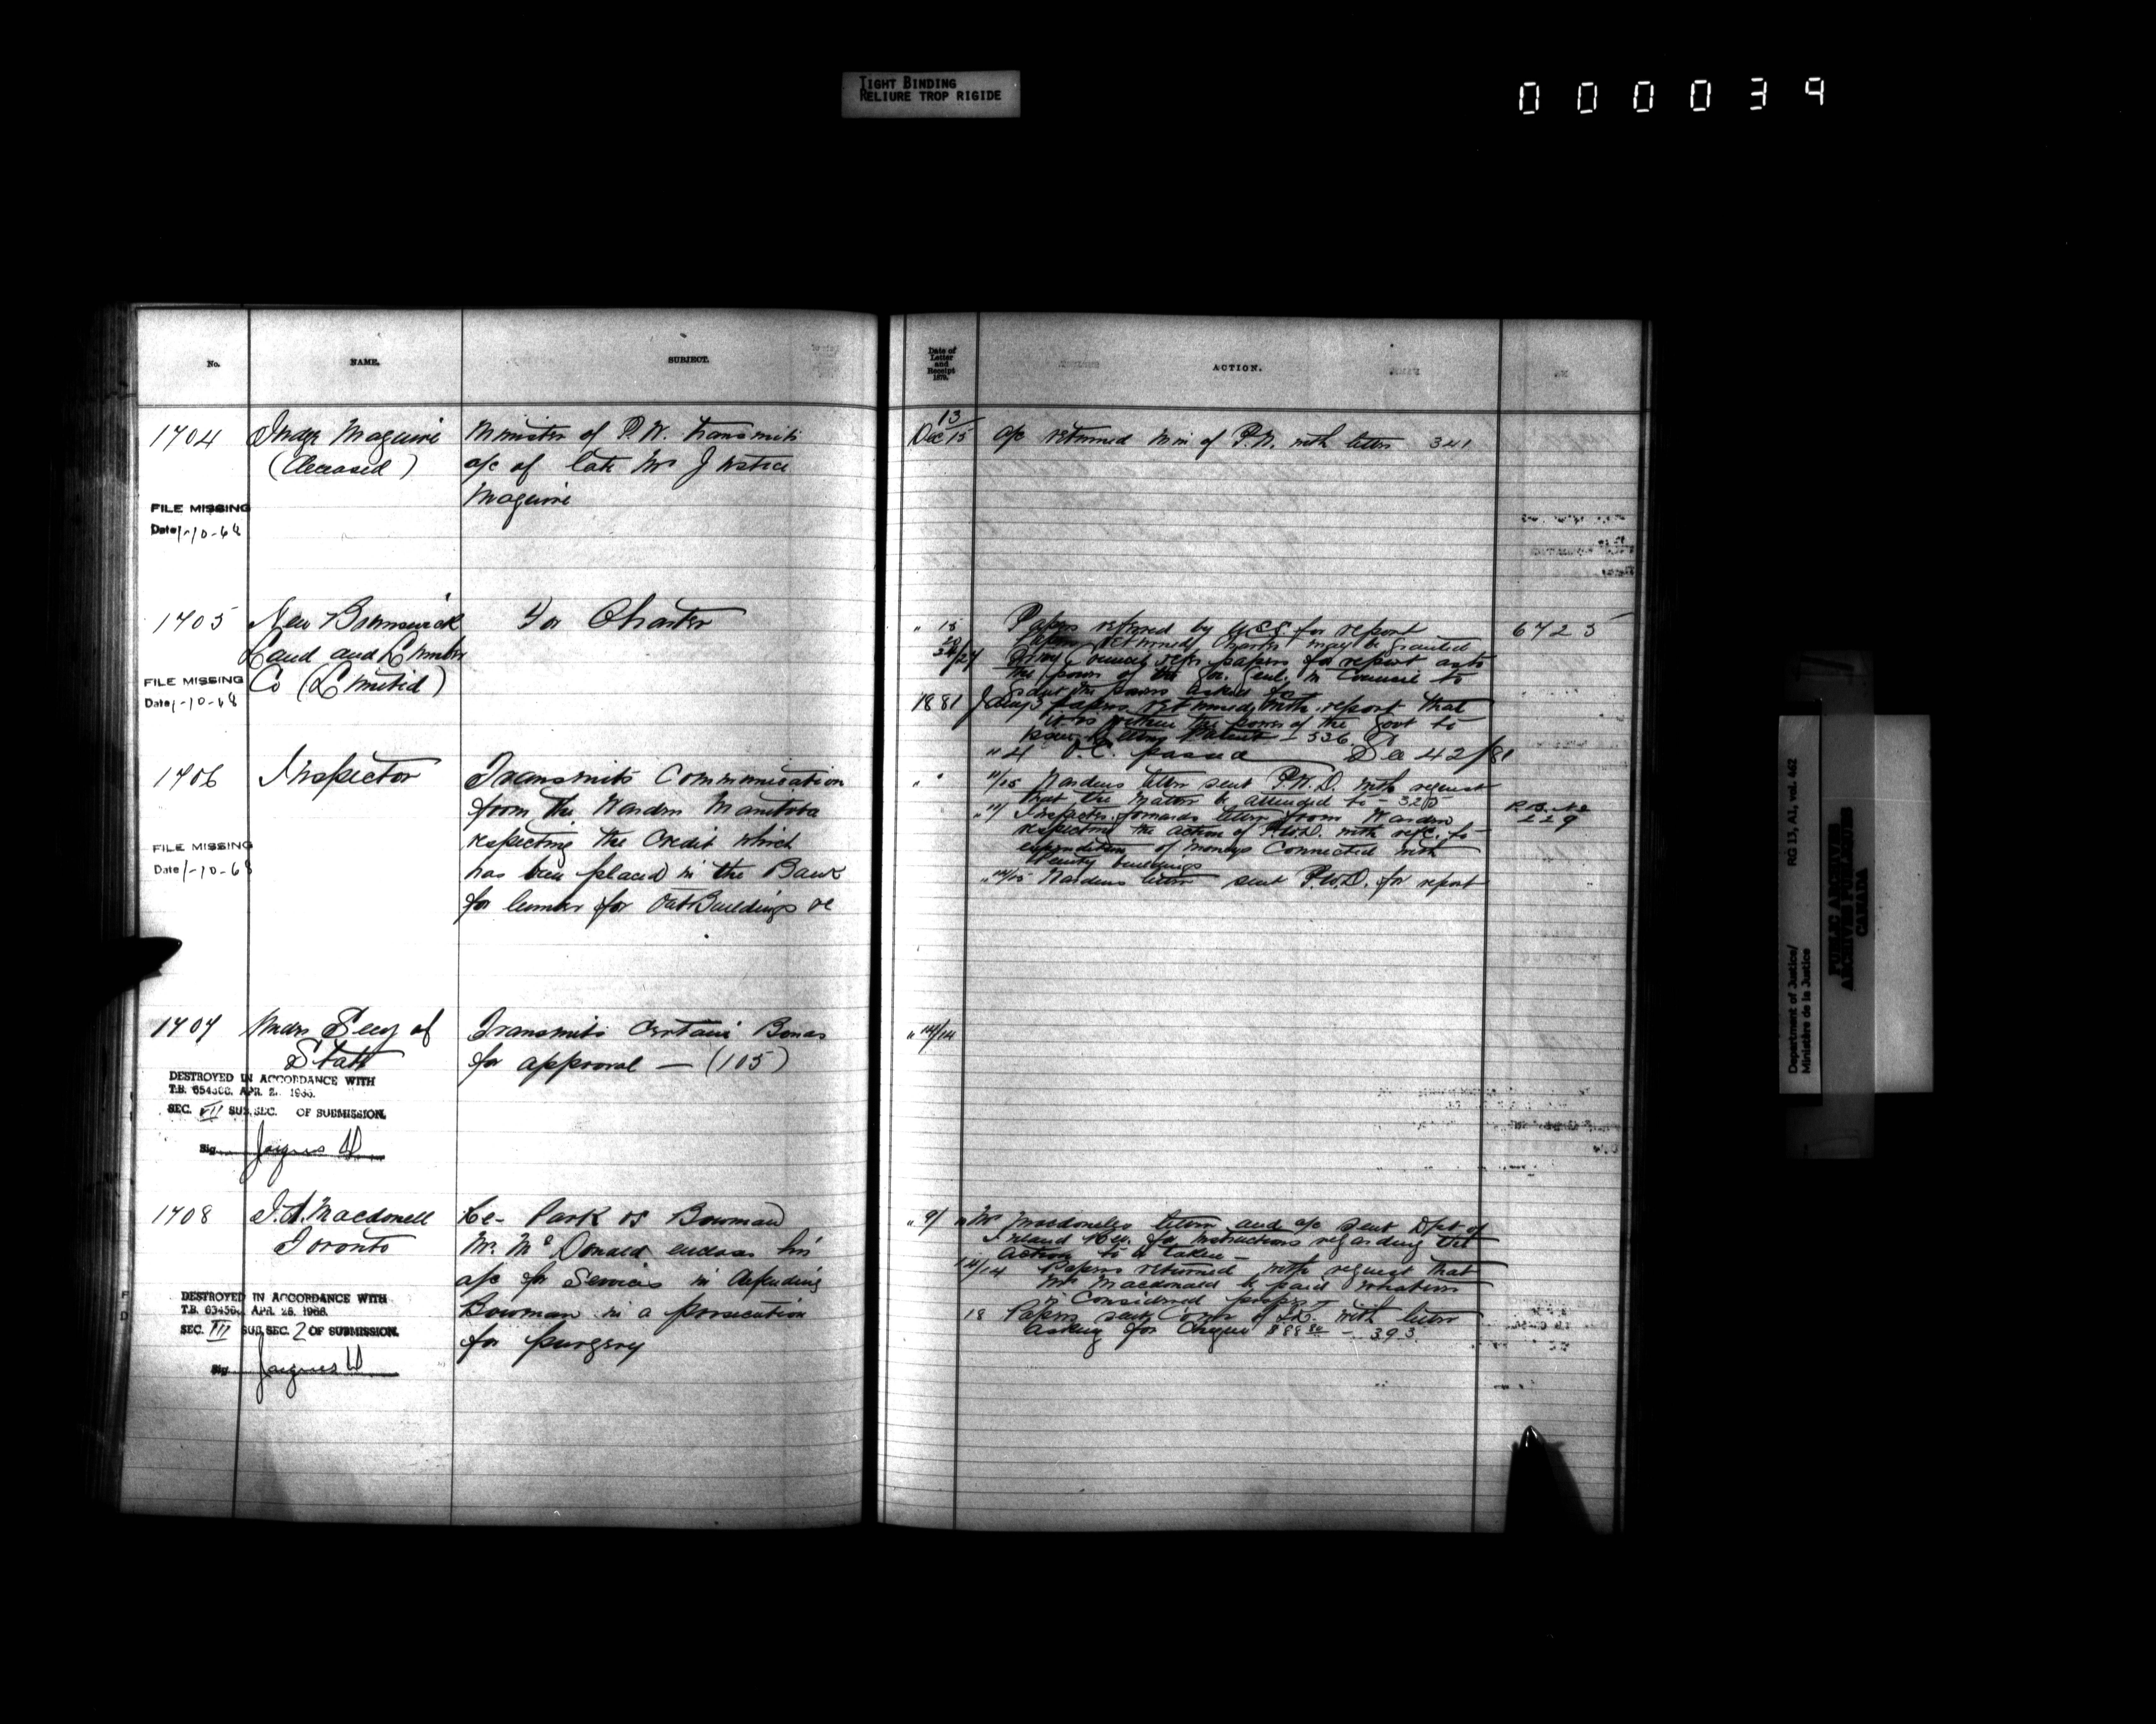 TIGHT BINDING
RELIURE TROP RIGIDE
000039
No.
NAME.
SUBJECT.
1704
Judge Maguire
(Deceased)
Minister of P.W. transmits
a/c of late Mr Justice
Maguire
FILE MISSING
Date 1-10-68
1705
New Brunswick
Land and Lumber
Co (Limited)
For Charter
FILE MISSING
Date 1-10-68
1706
Inspector
Transmits Communication
from the Warden Manitoba
respecting the Credit which
has been placed in the Bank
for lumber for OutBuildings &c
FILE MISSING
Date 1-10-68
1707
Under Secy of
State
Transmits Certain Bonds
for approval — (105)
DESTROYED IN ACCORDANCE WITH
T.B. APR. 1966.
SEC. VII SUB.SEC. OF SUBMISSION.
Sig
1708
J.A. Macdonell
Toronto
Re- Park vs Bowman
Mr. McDonald encloses his
a/c for Services in defending
Bowman in a prosecution
for purgery
DESTROYED IN ACCORDANCE WITH
T.B. APR. 26, 1966.
SEC. VII SUB.SEC. 2 OF SUBMISSION.
Sig
Date of
Letter
and
Receipt
187 .
ACTION.
13/
Dec 15 a/c returned Min of P.W. with letter 341
" 18 Papers referred by for report 6723
20 Papers returned Charter may be granted
24/27 Privy Council refer papers for report as to
the power of the Gov. Genl. in Council to
grant the powers asked for
1881 Jany 3 papers returned with report that
it is within the power of the Govt to
issue Letters Patent - 536
" 4 O.C. passed See 42/81
" " 11/15 Wardens letter sent P.W.D. with request
that the matter be attended to - 325
" 11/ Inspector forwards letter from Warden
respecting the action of P.W.D. with refce. to
expenditure of moneys Connected with
Penity buildings
229
" 14/15 Wardens letter sent P.W.D. for report
" 14/14
" 9/ " Mr Macdonells letter and a/c sent Dept of
Inland Rev. for instructions regarding the
action to be taken -
14/14 Papers returned with request that
Mr Macdonald be paid whatever
is Considered proper -
18 Papers sent Comr of I.R. with letter
asking for Cheque - 393.
Department of Justice/
Ministère de la Justice
RG 13, A1, vol. 462
PUBLIC ARCHIVES
ARCHIVES PUBLIQUES
CANADA